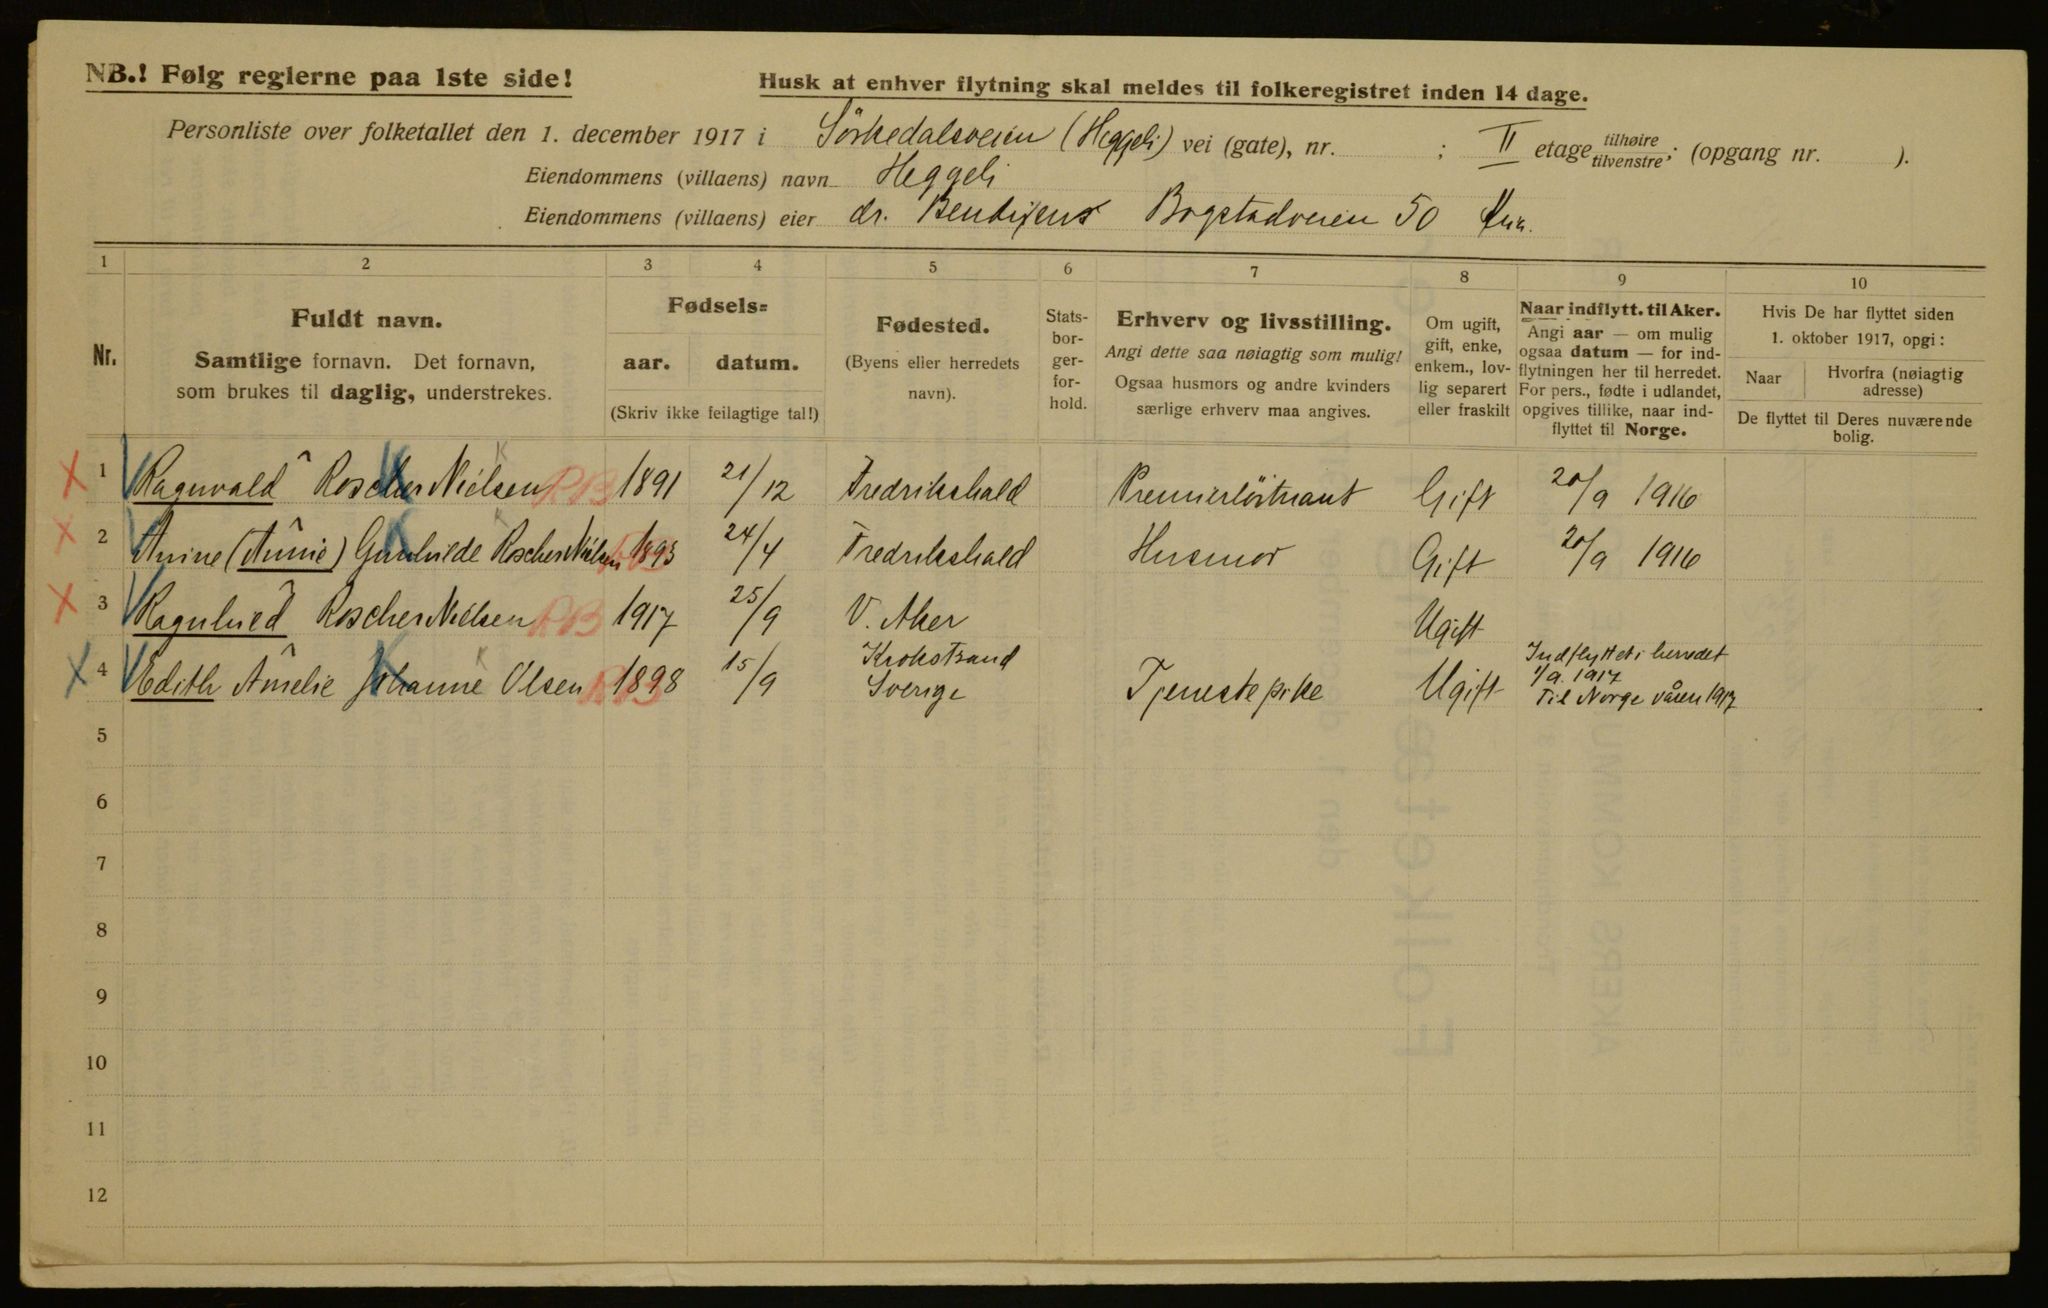 NB.! Følg reglerne paa 1ste side!
Husk at enhver flytning skal meldes til folkeregistret inden 14 dage.
Personliste over folketallet den 1. december 1917 i Sörkedalsveien (Heggeli) vei (gate), nr. ; II etage tilhøire tilvenstre; (opgang nr. ).
Eiendommens (villaens) navn Heggeli
Eiendommens (villaens) eier dr. Bendixens Bogstadveien 50
1 2 3 4 5 6 7 8 9 10
Nr.
Fuldt navn.
Samtlige fornavn. Det fornavn,
som brukes til daglig, understrekes.
Fødsels=
aar. datum.
(Skriv ikke feilagtige tal!)
Fødested.
(Byens eller herredets
navn).
Stats-
bor-
ger-
for-
hold.
Erhverv og livsstilling.
Angi dette saa nøiagtig som mulig!
Ogsaa husmors og andre kvinders
særlige erhverv maa angives.
Om ugift,
gift, enke,
enkem., lov-
lig separert
eller fraskilt
Naar indflytt. til Aker.
Angi aar — om mulig
ogsaa datum — for ind-
flytningen her til herredet.
For pers., fødte i udlandet,
opgives tillike, naar ind-
flyttet til Norge.
Hvis De har flyttet siden
1. oktober 1917, opgi:
Naar
Hvorfra (nøiagtig
adresse)
De flyttet til Deres nuværende
bolig.
1 Ragnvald Roscher Nielsen RB 1891 21/12 Fredrikshald Premierløitnant Gift 20/9 1916
2 Anine (Annie) Gunhilde Roscher Nielsen RB 1893 24/4 Fredrikshald Husmor Gift 20/9 1916
3 Ragnhild Roscher Nielsen RB 1917 25/9 V. Aker Ugift
4 Edith Amelie Johanne Olsen RB 1898 15/9 Krokstrand Sverige Tjenestepike Ugift Indflyttet i herredet 1/9 1917 Til Norge våren 1917
5
6
7
8
9
10
11
12